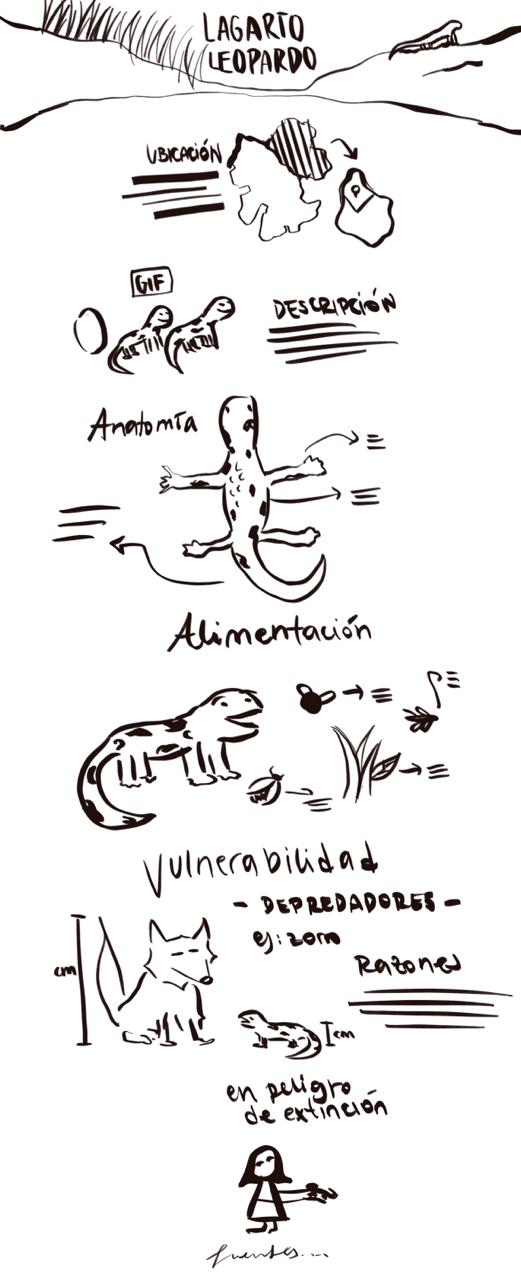 LAGARTO
LEOPARDO
UBICACIÓN
GIF
DESCRIPCIÓN
Anatomía
Alimentación
Vulnerabilidad
- DEPREDADORES -
ej: zorro
cm
Razones
cm
en peligro
de extinción
fuentes...